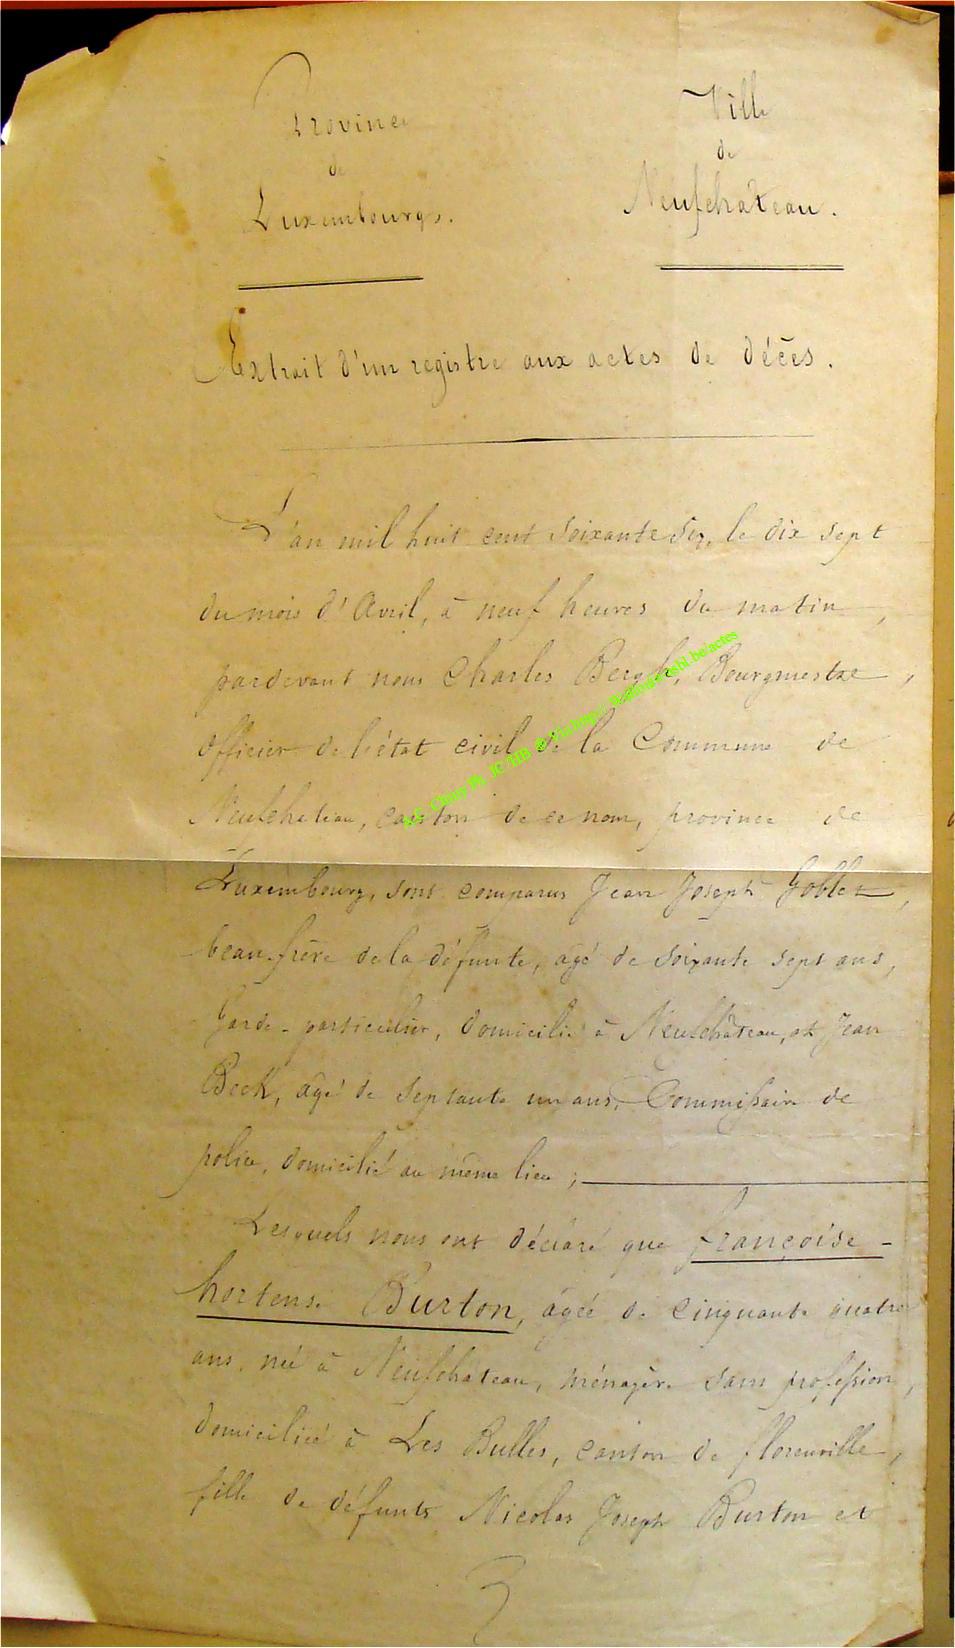 Province
de
Luxembourg.
Ville
de
Neufchâteau.
Extrait d'un registre aux actes de décès.
L'an mil huit cent soixante six, le dix sept
du mois d'Avril, à neuf heures du matin,
pardevant nous Charles Bergh, Bourgmestre,
officier de l'état civil de la Commune de
Neufchateau, canton de ce nom, province de
Luxembourg, sont comparus Jean Joseph Goblet,
beau-frère de la défunte, agé de soixante sept ans,
Garde-particulier, domicilié à Neufchâteau, et Jean
Beck, âgé de septante un ans, Commissaire de
police, domicilié au même lieu ;
Lesquels nous ont déclaré que françoise-
hortense Burton, âgée de cinquante quatre
ans, née à Neufchâteau, ménagère sans profession,
domiciliée à Les Bulles, canton de florenville,
fille de défunts Nicolas Joseph Burton et